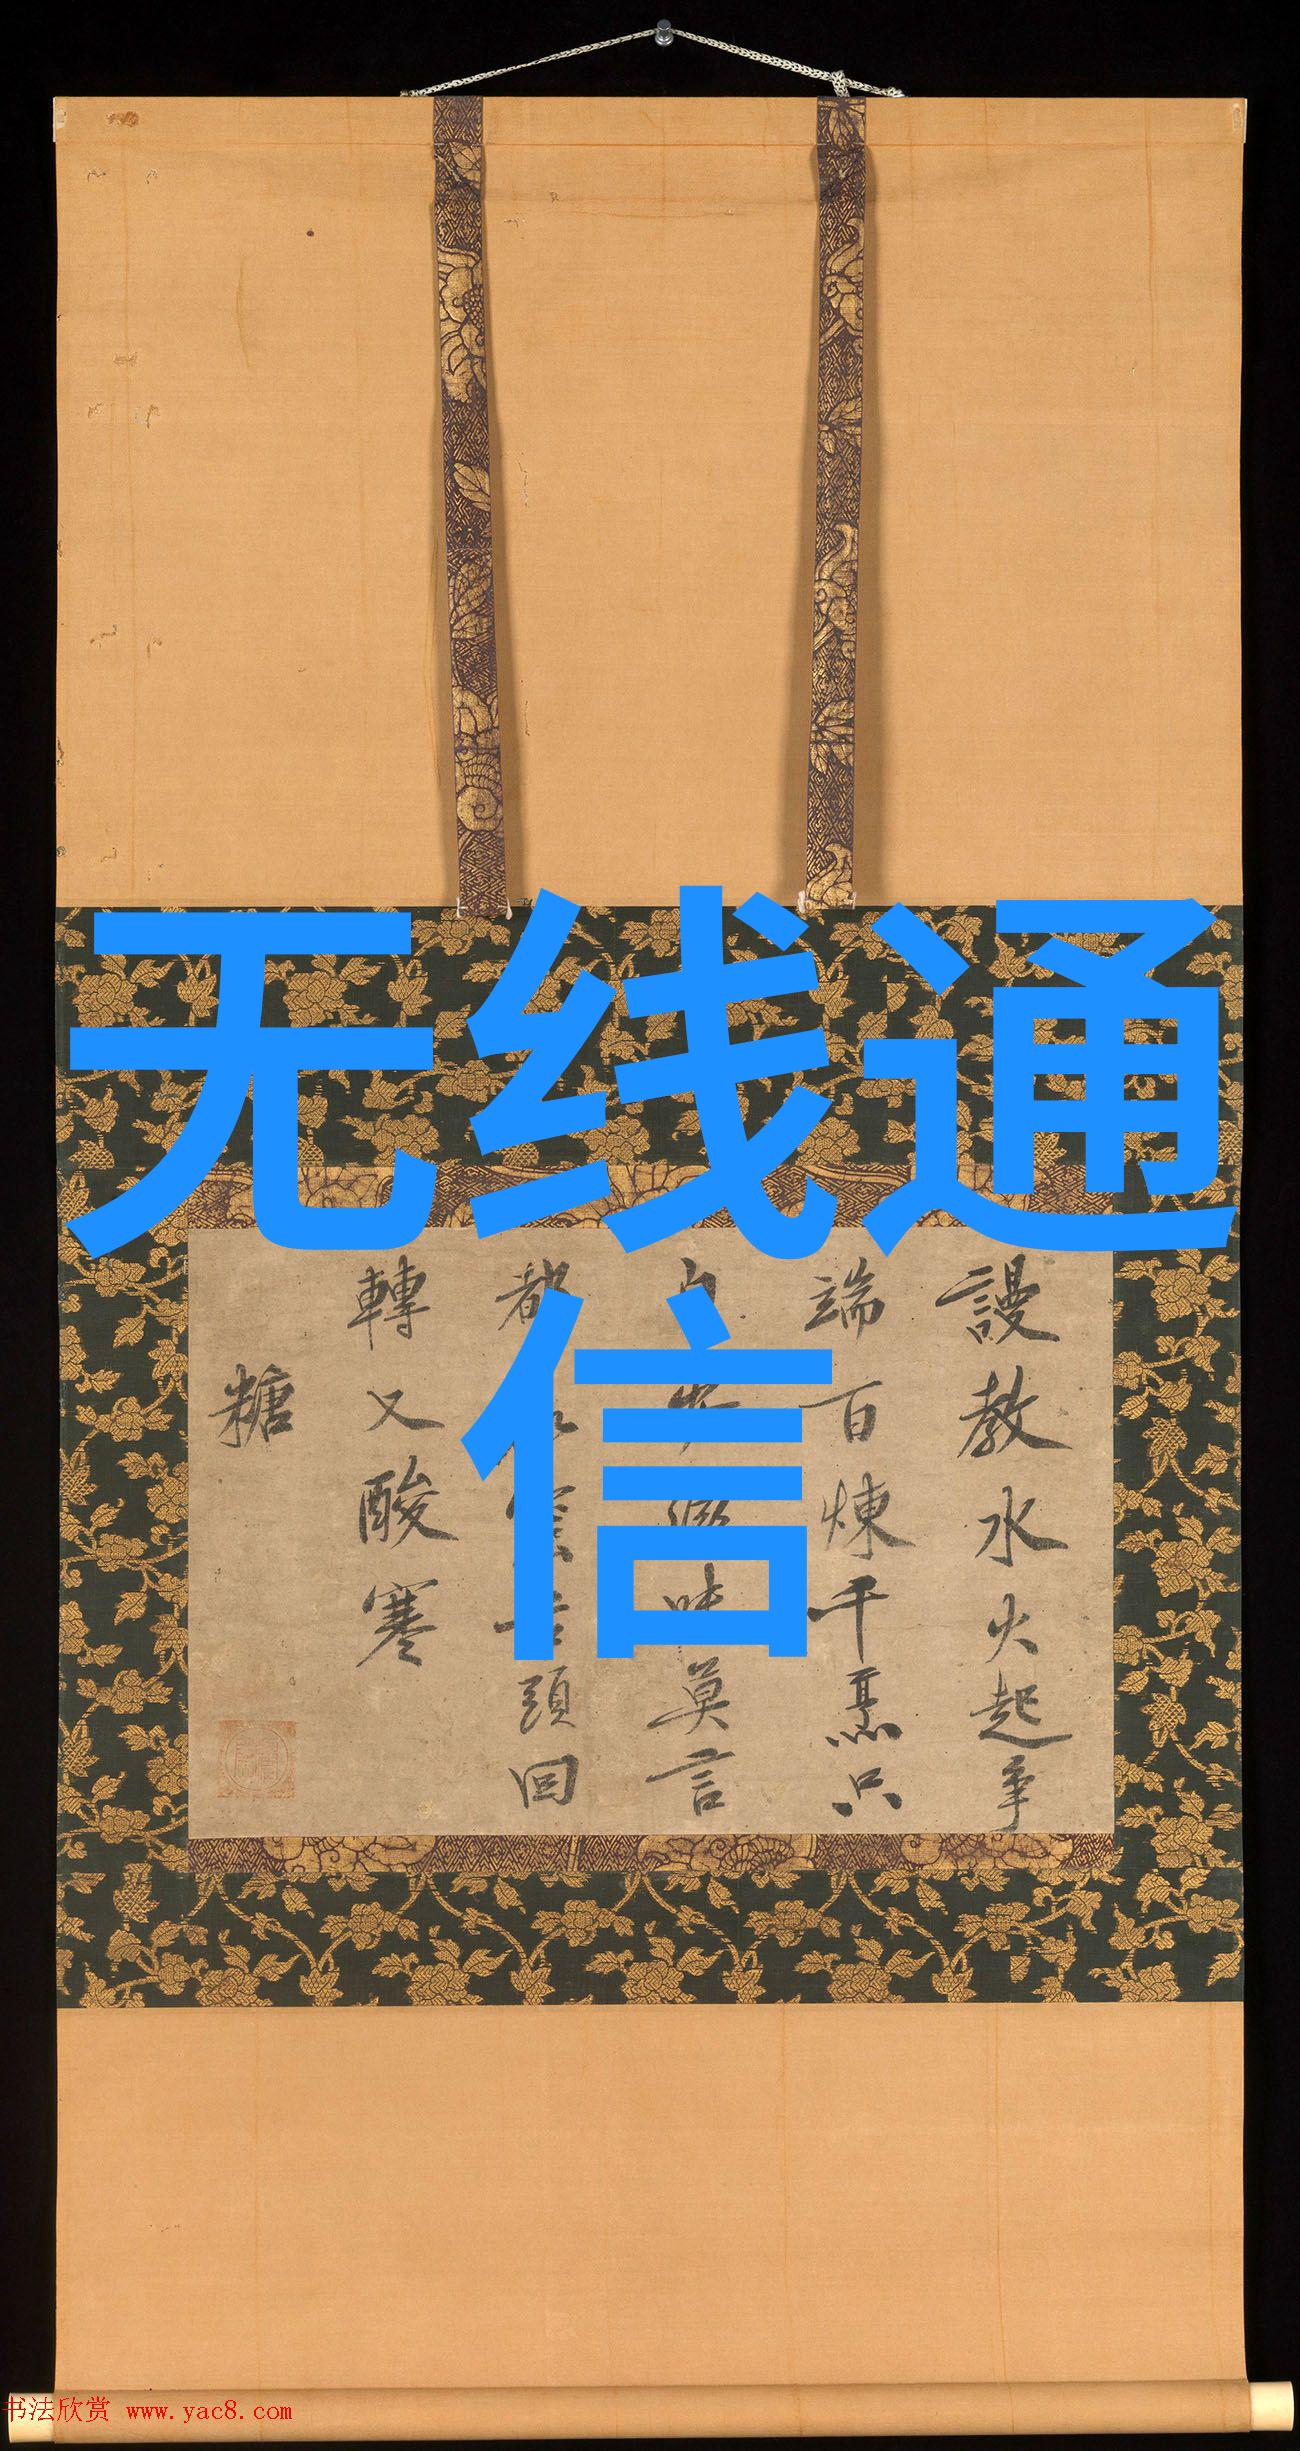 无线通
信
謾教水火起爭
端百煉千烹只
莫言
都頭回
轉又酸寒
糖
书法欣赏 www.yac8.com